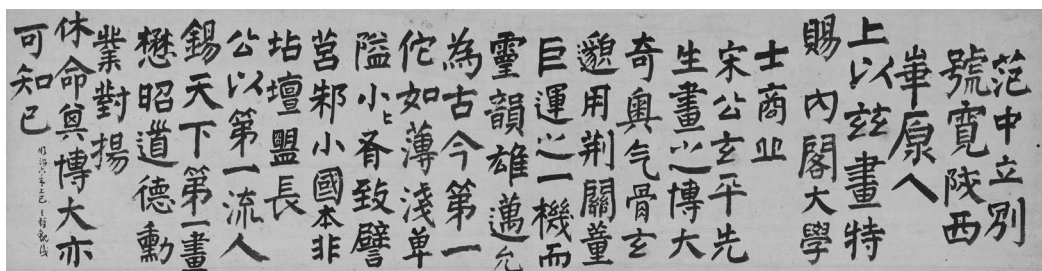 范中立別
號寬陝西
華原人
上以茲畫特
賜內閣大學
士商丘
宋公玄平先
生畫之博大
奇奧气骨玄
邈用荆關董
巨運之一機而
靈韻雄邁允
為古今第一
佗如薄淺單
隘小小者致譬
莒邾小國本非
坫壇盟長
公以第一流人
錫天下第一畫
懋昭道德勳
業對揚
休命其博大亦
可知已
順治六年 王鐸